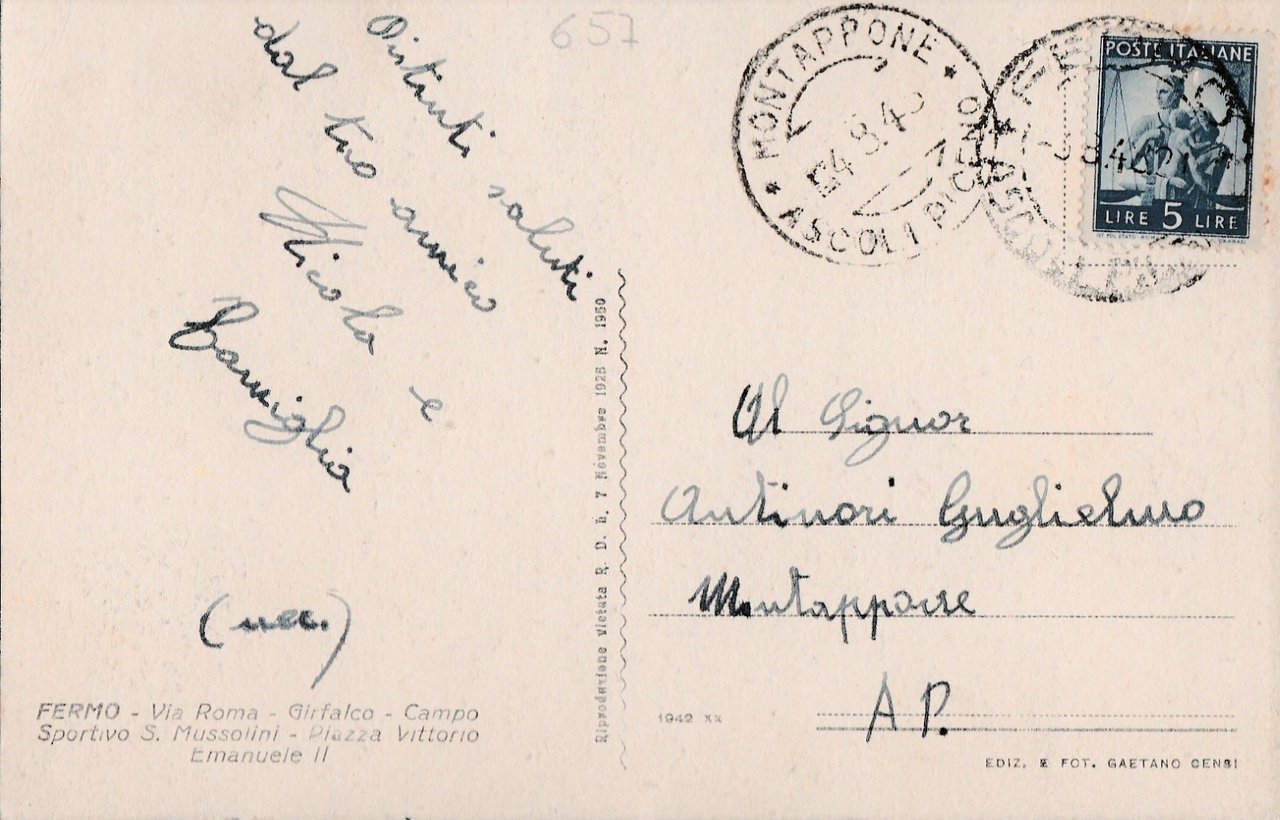 657
Distinti saluti
dal tuo amico
Nicola e
Famiglia
FERMO - Via Roma - Girfalco - Campo
Sportivo S. Mussolini - Piazza Vittorio
Emanuele II
Riproduzione vietata R. D. L. 7 Novembre 1925 N. 1950
* MONTAPPONE *
ASCOLI PICENO
POSTE ITALIANE
LIRE 5 LIRE
Al Signor
Antinori Guglielmo
Montappone
A P.
1942 XX
EDIZ. E FOT. GAETANO CENSI